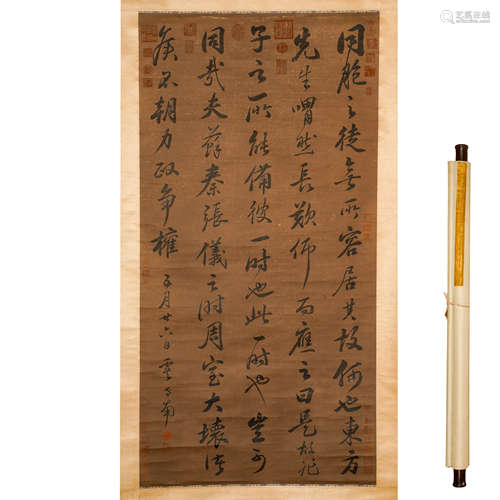 同胞之徒無所容居其故何也東方
先生喟然長歎仰而應之曰是故非
子之所能備彼一时也此一时也豈可
同哉夫蘇秦張儀之时周室大壞諸
侯不朝力政争權
五月廿六日
艺狐在线